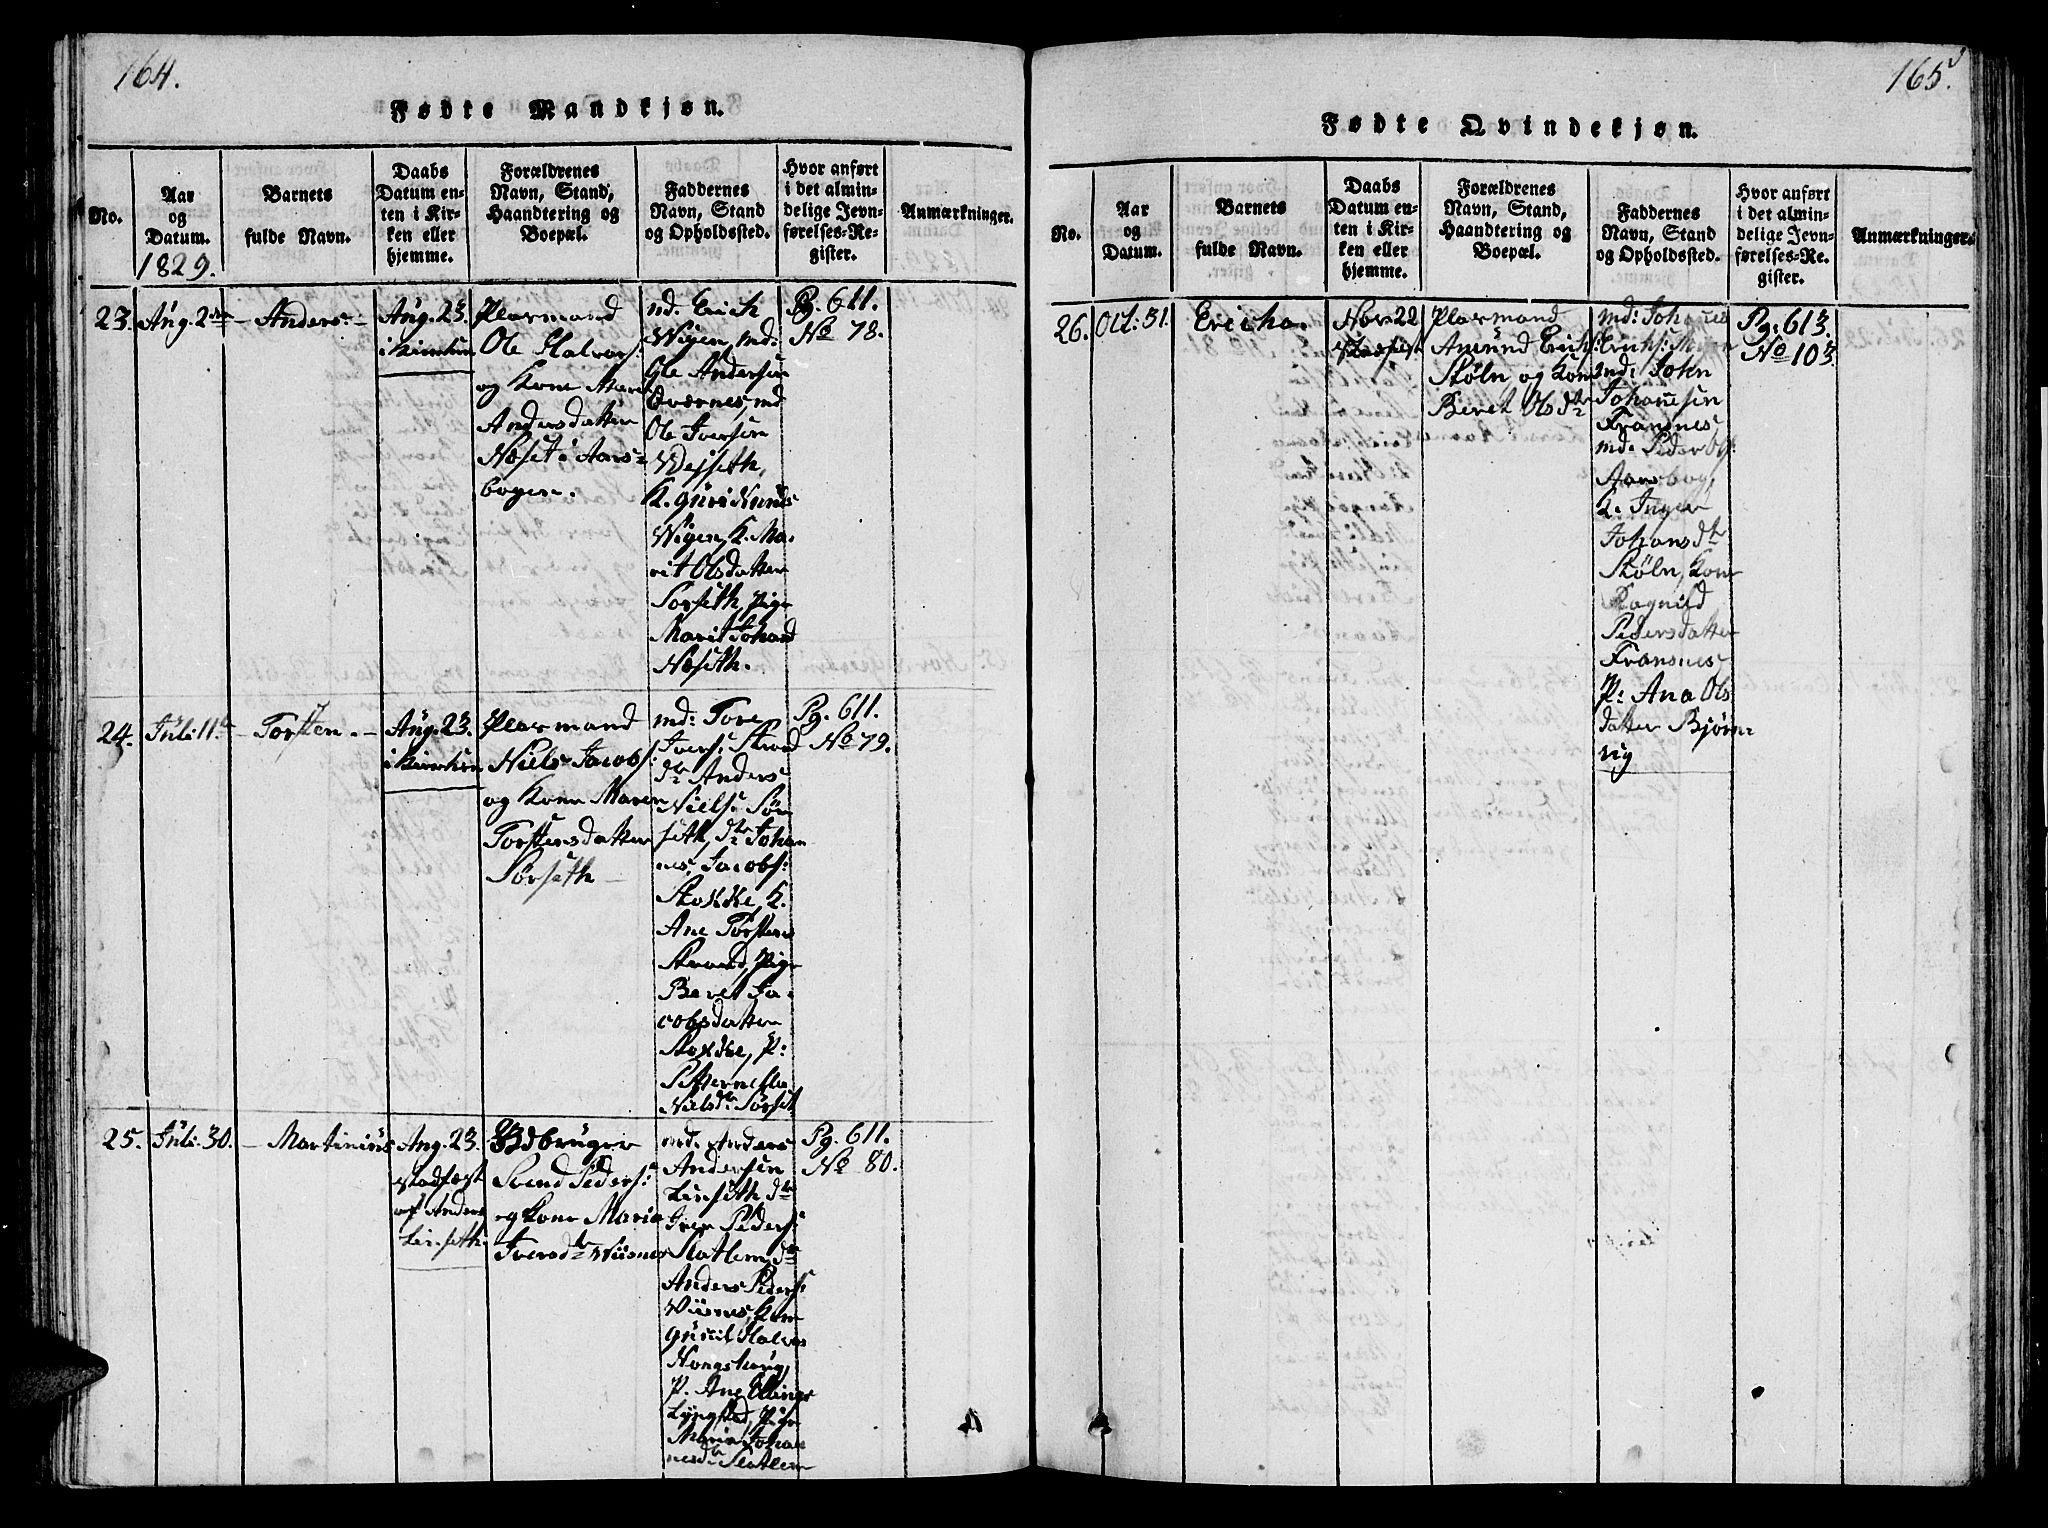 164.
Fødte Mandkjøn.
No.
Aar
og
Datum.
1829.
Barnets
fulde Navn.
Daabs
Datum en-
ten i Kir-
ken eller
hjemme.
Forældrenes
Navn, Stand,
Haandtering og
Boepæl.
Faddernes
Navn, Stand
og Opholdssted.
Hvor anført
i det almin-
delige Jevn-
førelses-Re-
gister.
Anmærkninger.
23.
Aug. 2den
Anders
Aug. 23.
i Kirken
Plasmand
Ole Halvors:
og Kone Maren
Andersdatter
Næset i Aars-
bogen.
md. Erich
Wigen, md:
Ole Andersen
Qværnes md
Ole Iversen
Wejseth,
K. Guri Knuds
Wigen, K. Ma-
rit Olsdatter
Sorseth, Pige
Marit Johans
Næseth.
Pg. 611.
No 78.
24.
Juli 11te
Torsten.
Aug. 23.
i Kirken
Plasmand
Niels Jacobs:
og Kone Maren
Torstensdatter
Sørseth
md: Tore
Ivers: Strand
dr Anders
Niels: Sør
seth, dr Johan
nes, Jacobs:
Stokke, K.
Ane Torstens
Strand, Pige
Beret Ja-
cobsdatter
Stokke, P:
Petternella
Nielsdr Sørset
Pg. 611.
No 79.
25.
Juli 30.
Martinius
Aug. 23.
stadfæst
af Anders
Linseth.
Bdbruger
Svend Peders:
og Kone Maria
Iversdr Wiisnes
md. Anders
Andersen
Linseth dr
Iver Peders:
Slatlem, dr
Anders Peders:
Viisnes, Kone
Guruil Halvors
Hongshaug,
P. Ane Ellings
Lyngstad, Pige
Marit Johan
nesdr Slatlem
Pg. 611.
No 80.
165.
Fødte Qvindekjøn.
No.
Aar
og
Datum.
Barnets
fulde Navn.
Daabs
Datum en-
ten i Kir-
ken eller
hjemme.
Forældrenes
Navn, Stand,
Haandtering og
Boepæl.
Faddernes
Navn, Stand
og Opholdssted.
Hvor anført
i det almin-
delige Jevn-
førelses-Re-
gister.
Anmærkninger.
26.
Oct: 31.
Ericha.
Nov 22
stadfæst
Plasmand
Amund Erichs:
Støln og Kone
Beret Olsdtr
md: Johanes
Erichs:
md: John
Johannesen
Fransnes
md: Peder
Aarsbog,
K. Inger
Johansdtr
Støln, Kone
Ragnild
Pedersdatter
Fransnes
P: Ana Ols
datter Bjørne
vig
Pg: 613.
No 103.